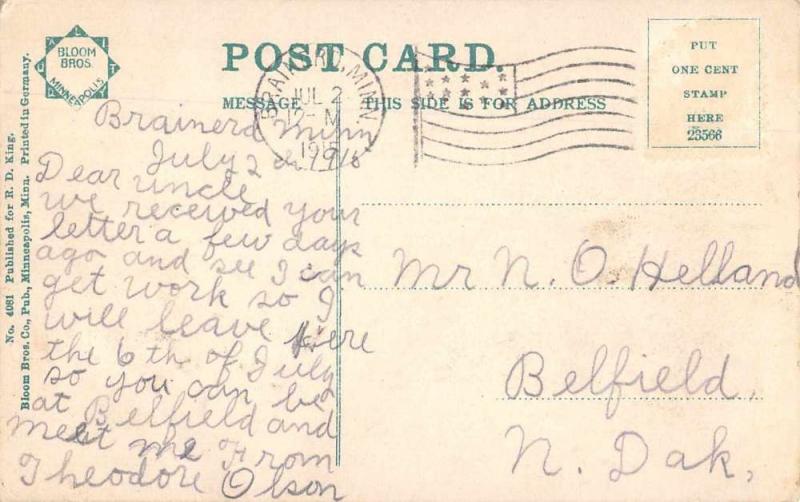 No. 4081 Published for R. D. King.
Bloom Bros. Co., Pub., Minneapolis, Minn. Printed in Germany.
BLOOM
BROS.
MINNEAPOLIS
POST CARD.
MESSAGE
THIS SIDE IS FOR ADDRESS
BRAINERD, MINN.
JUL 2
12-M
PUT
ONE CENT
STAMP
HERE
23566
Brainerd Minn
July 2
Dear uncle
we received your
letter a few days
ago and see I can
get work so I
will leave here
the 6th of July
so you can be
at Belfield and
meet me From
Theodore Olson
Mr N. O. Helland
Belfield,
N. Dak,